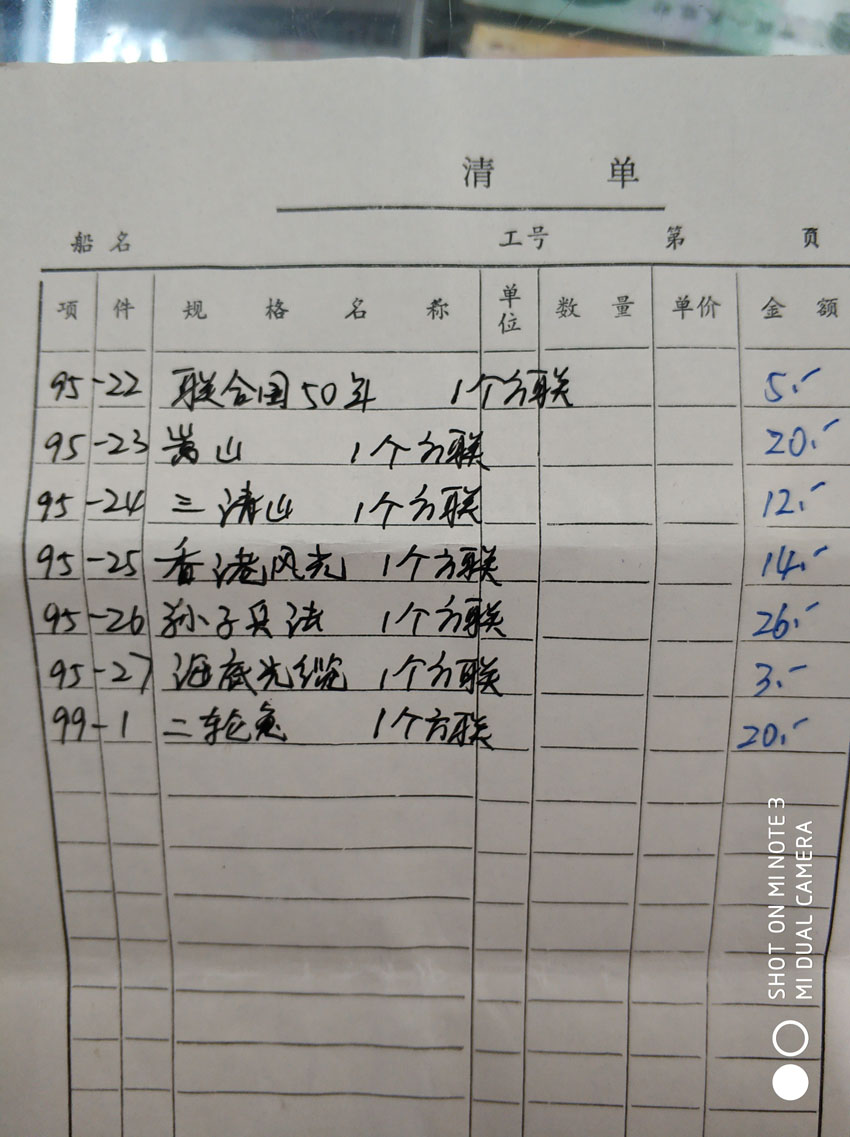 清 单
船名 工号 第 页
项 件 规 格 名 称 单位 数 量 单价 金 额
95-22 联合国50年 1个方联 5.-
95-23 嵩山 1个方联 20.-
95-24 三清山 1个方联 12.-
95-25 香港风光 1个方联 14.-
95-26 孙子兵法 1个方联 26.-
95-27 海底光缆 1个方联 3.-
99-1 二轮兔 1个方联 20.-
SHOT ON MI NOTE 3
MI DUAL CAMERA